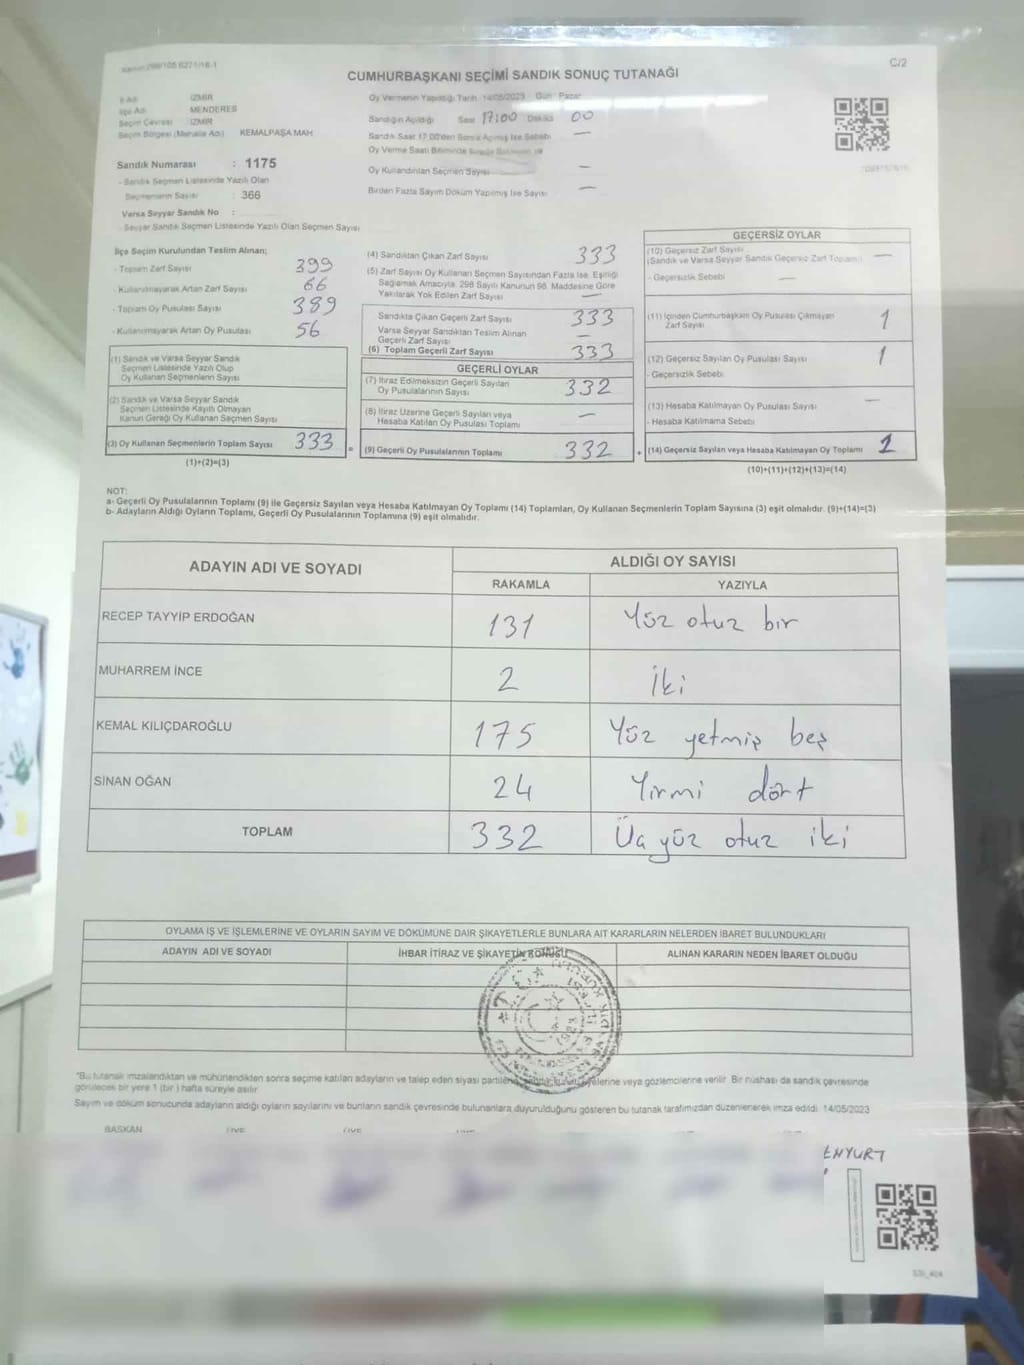 C/2
CUMHURBAŞKANI SEÇİMİ SANDIK SONUÇ TUTANAĞI
İl Adı : İZMİR
İlçe Adı : MENDERES
Seçim Çevresi : İZMİR
Seçim Bölgesi (Mahalle Adı) : KEMALPAŞA MAH
Sandık Numarası : 1175
- Sandık Seçmen Listesinde Yazılı Olan
Seçmenlerin Sayısı : 366
Varsa Seyyar Sandık No :
- Seyyar Sandık Seçmen Listesinde Yazılı Olan Seçmen Sayısı
Oy Vermenin Yapıldığı Tarih 14/05/2023 Gün Pazar
Sandığın Açıldığı Saat 17:00 Dakika 00
Sandık Saat 17.00'den Sonra Açılmış İse Sebebi —
Oy Verme Saati Bitiminde
Oy Kullandırılan Seçmen Sayısı —
Birden Fazla Sayım Döküm Yapılmış İse Sayısı —
İlçe Seçim Kurulundan Teslim Alınan;
- Toplam Zarf Sayısı 399
- Kullanılmayarak Artan Zarf Sayısı 66
- Toplam Oy Pusulası Sayısı 389
- Kullanılmayarak Artan Oy Pusulası 56
(1) Sandık ve Varsa Seyyar Sandık
Seçmen Listesinde Yazılı Olup
Oy Kullanan Seçmenlerin Sayısı
(2) Sandık ve Varsa Seyyar Sandık
Seçmen Listesinde Kayıtlı Olmayan
Kanun Gereği Oy Kullanan Seçmen Sayısı
(3) Oy Kullanan Seçmenlerin Toplam Sayısı 333
(1)+(2)=(3)
(4) Sandıktan Çıkan Zarf Sayısı 333
(5) Zarf Sayısı Oy Kullanan Seçmen Sayısından Fazla İse, Eşitliği
Sağlamak Amacıyla, 298 Sayılı Kanunun 98. Maddesine Göre
Yakılarak Yok Edilen Zarf Sayısı —
Sandıkta Çıkan Geçerli Zarf Sayısı 333
Varsa Seyyar Sandıktan Teslim Alınan
Geçerli Zarf Sayısı —
(6) Toplam Geçerli Zarf Sayısı 333
GEÇERLİ OYLAR
(7) İtiraz Edilmeksizin Geçerli Sayılan
Oy Pusulalarının Sayısı 332
(8) İtiraz Üzerine Geçerli Sayılan veya
Hesaba Katılan Oy Pusulası Toplamı —
= (9) Geçerli Oy Pusulalarının Toplamı 332
GEÇERSİZ OYLAR
(10) Geçersiz Zarf Sayısı
(Sandık ve Varsa Seyyar Sandık Geçersiz Zarf Toplamı) —
- Geçersizlik Sebebi —
(11) İçinden Cumhurbaşkanı Oy Pusulası Çıkmayan
Zarf Sayısı 1
(12) Geçersiz Sayılan Oy Pusulası Sayısı 1
- Geçersizlik Sebebi
(13) Hesaba Katılmayan Oy Pusulası Sayısı —
- Hesaba Katılmama Sebebi
+ (14) Geçersiz Sayılan veya Hesaba Katılmayan Oy Toplamı 1
(10)+(11)+(12)+(13)=(14)
NOT:
a- Geçerli Oy Pusulalarının Toplamı (9) ile Geçersiz Sayılan veya Hesaba Katılmayan Oy Toplamı (14) Toplamları, Oy Kullanan Seçmenlerin Toplam Sayısına (3) eşit olmalıdır. (9)+(14)=(3)
b- Adayların Aldığı Oyların Toplamı, Geçerli Oy Pusulalarının Toplamına (9) eşit olmalıdır.
ADAYIN ADI VE SOYADI
ALDIĞI OY SAYISI
RAKAMLA YAZIYLA
RECEP TAYYİP ERDOĞAN 131 Yüz otuz bir
MUHARREM İNCE 2 İki
KEMAL KILIÇDAROĞLU 175 Yüz yetmiş beş
SİNAN OĞAN 24 Yirmi dört
TOPLAM 332 Üç yüz otuz iki
OYLAMA İŞ VE İŞLEMLERİNE VE OYLARIN SAYIM VE DÖKÜMÜNE DAİR ŞİKAYETLERLE BUNLARA AİT KARARLARIN NELERDEN İBARET BULUNDUKLARI
ADAYIN ADI VE SOYADI İHBAR İTİRAZ VE ŞİKAYETİN KONUSU ALINAN KARARIN NEDEN İBARET OLDUĞU
*Bu tutanak imzalandıktan ve mühürlendikten sonra seçime katılan adayların ve talep eden siyasi partilerin veya gözlemcilerine verilir. Bir nüshası da sandık çevresinde
görülecek bir yere 1 (bir) hafta süreyle asılır.
Sayım ve döküm sonucunda adayların aldığı oyların sayılarını ve bunların sandık çevresinde bulunanlara duyurulduğunu gösteren bu tutanak tarafımızdan düzenlenerek imza edildi. 14/05/2023
BAŞKAN
ENYURT